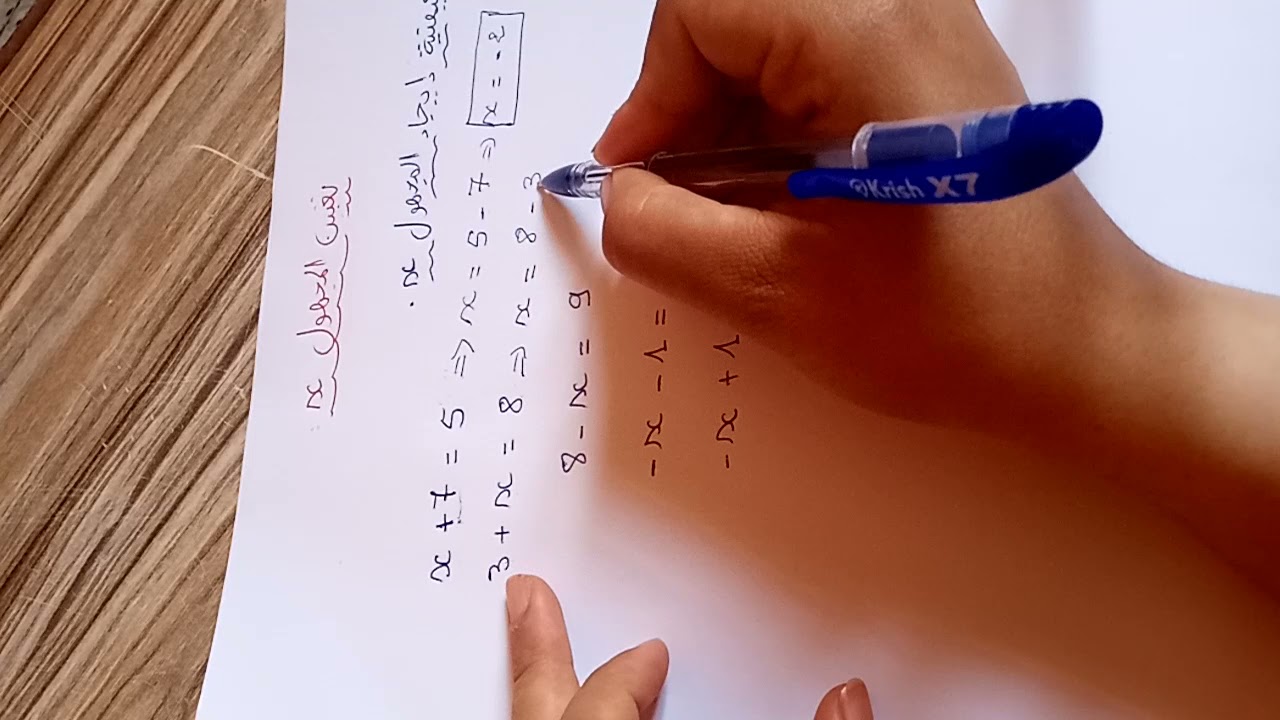 تعيين المجهول x
إيجاد المجهول x.
x + 7 = 5 ⇒ x = 5 - 7 ⇒ x = -2
3 + x = 8 ⇒ x = 8 - 3
8 - x = 9
-x - 1 =
-x + 1
Krish X7